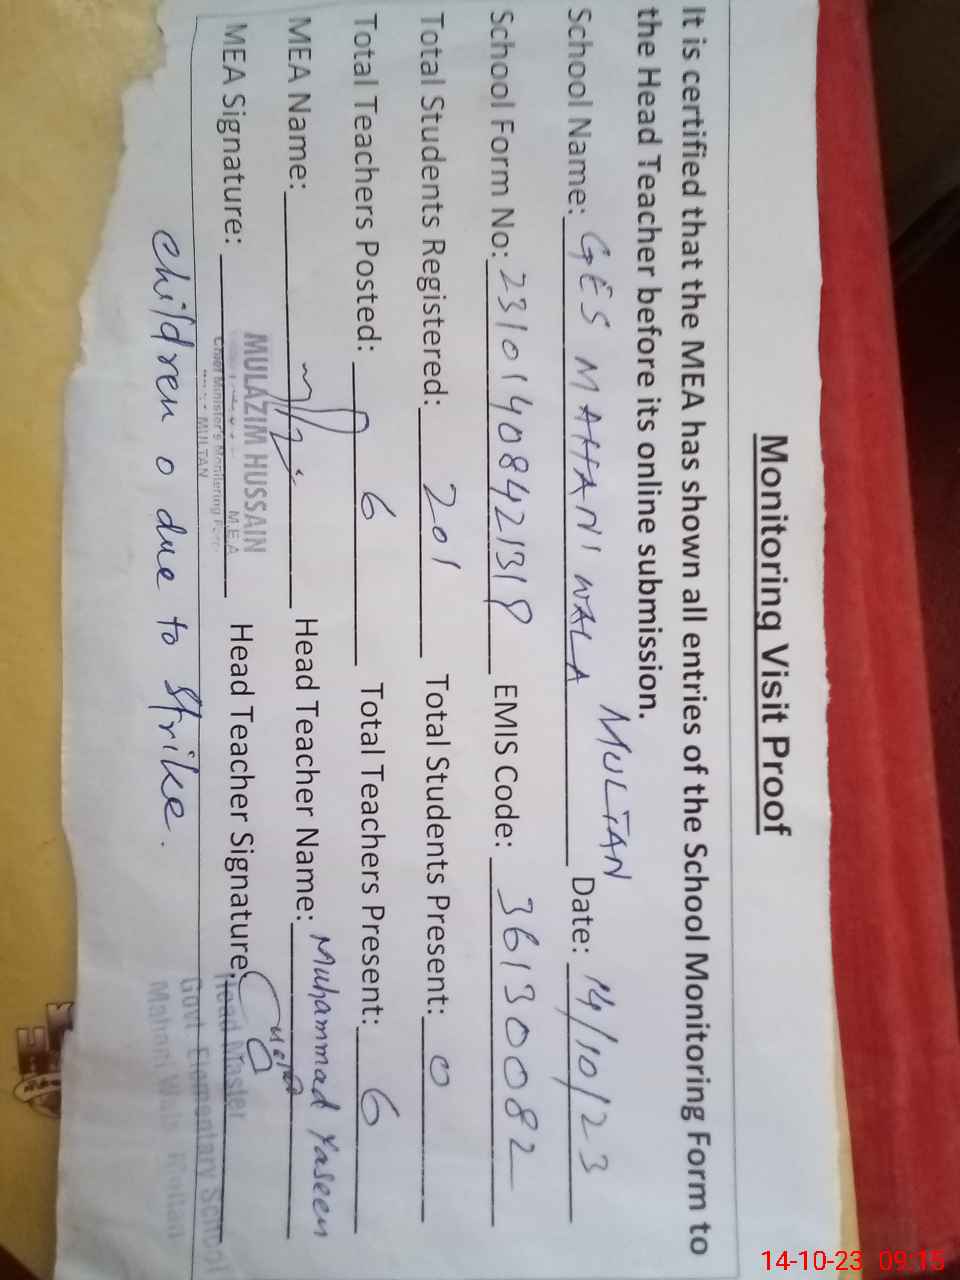 Monitoring Visit Proof
It is certified that the MEA has shown all entries of the School Monitoring Form to
the Head Teacher before its online submission.
School Name: GES MAHANI WALA MULTAN Date: 14/10/23
School Form No: 2310140842131 EMIS Code: 36130082
Total Students Registered: 201 Total Students Present: 0
Total Teachers Posted: 6 Total Teachers Present: 6
MEA Name: Head Teacher Name: Muhammad Yaseen
MEA Signature: Head Teacher Signature:
MULAZIM HUSSAIN
M.E.A
Chief Minister's Monitoring Force
MULTAN
Head Master
Govt Elementary School
Mahani Wala Multan
children 0 due to strike.
14-10-23 09:15